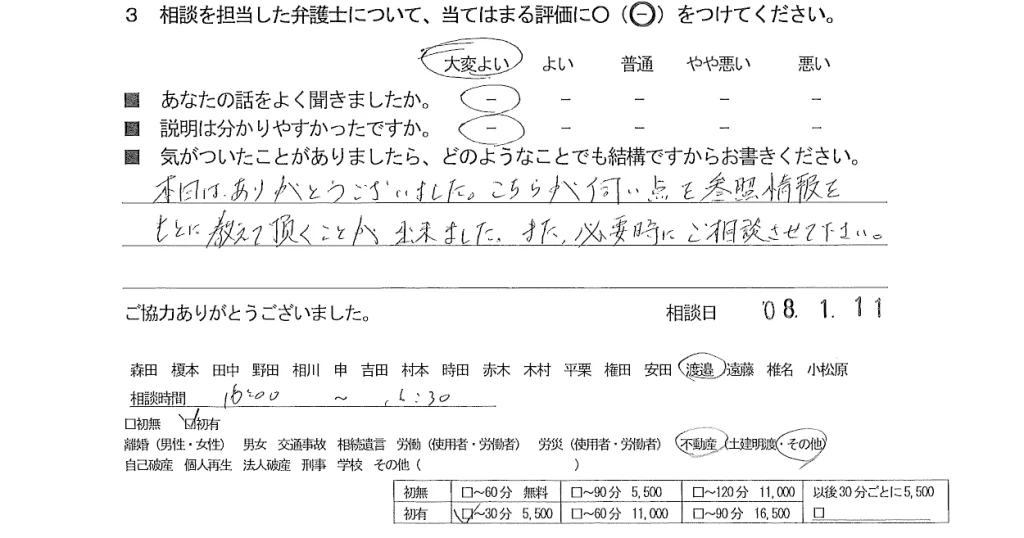 3 相談を担当した弁護士について、当てはまる評価に○(⊖)をつけてください。
大変よい よい 普通 やや悪い 悪い
■ あなたの話をよく聞きましたか。 － － － － －
■ 説明は分かりやすかったですか。 － － － － －
■ 気がついたことがありましたら、どのようなことでも結構ですからお書きください。
本日はありがとうございました。こちらが伺い点を参照情報を
もとに教えて頂くことが出来ました。また、必要時にご相談させて下さい。
ご協力ありがとうございました。 相談日 '08. 1. 11
森田 榎本 田中 野田 相川 申 吉田 村本 時田 赤木 木村 平栗 権田 安田 渡邉 遠藤 椎名 小松原
相談時間 16:00 ～ :30
□初無 ☑初有
離婚（男性・女性） 男女 交通事故 相続遺言 労働（使用者・労働者） 労災（使用者・労働者） 不動産（土建明渡・その他）
自己破産 個人再生 法人破産 刑事 学校 その他（ ）
初無 □～60分 無料 □～90分 5,500 □～120分 11,000 以後30分ごとに5,500
初有 ☑～30分 5,500 □～60分 11,000 □～90分 16,500 □